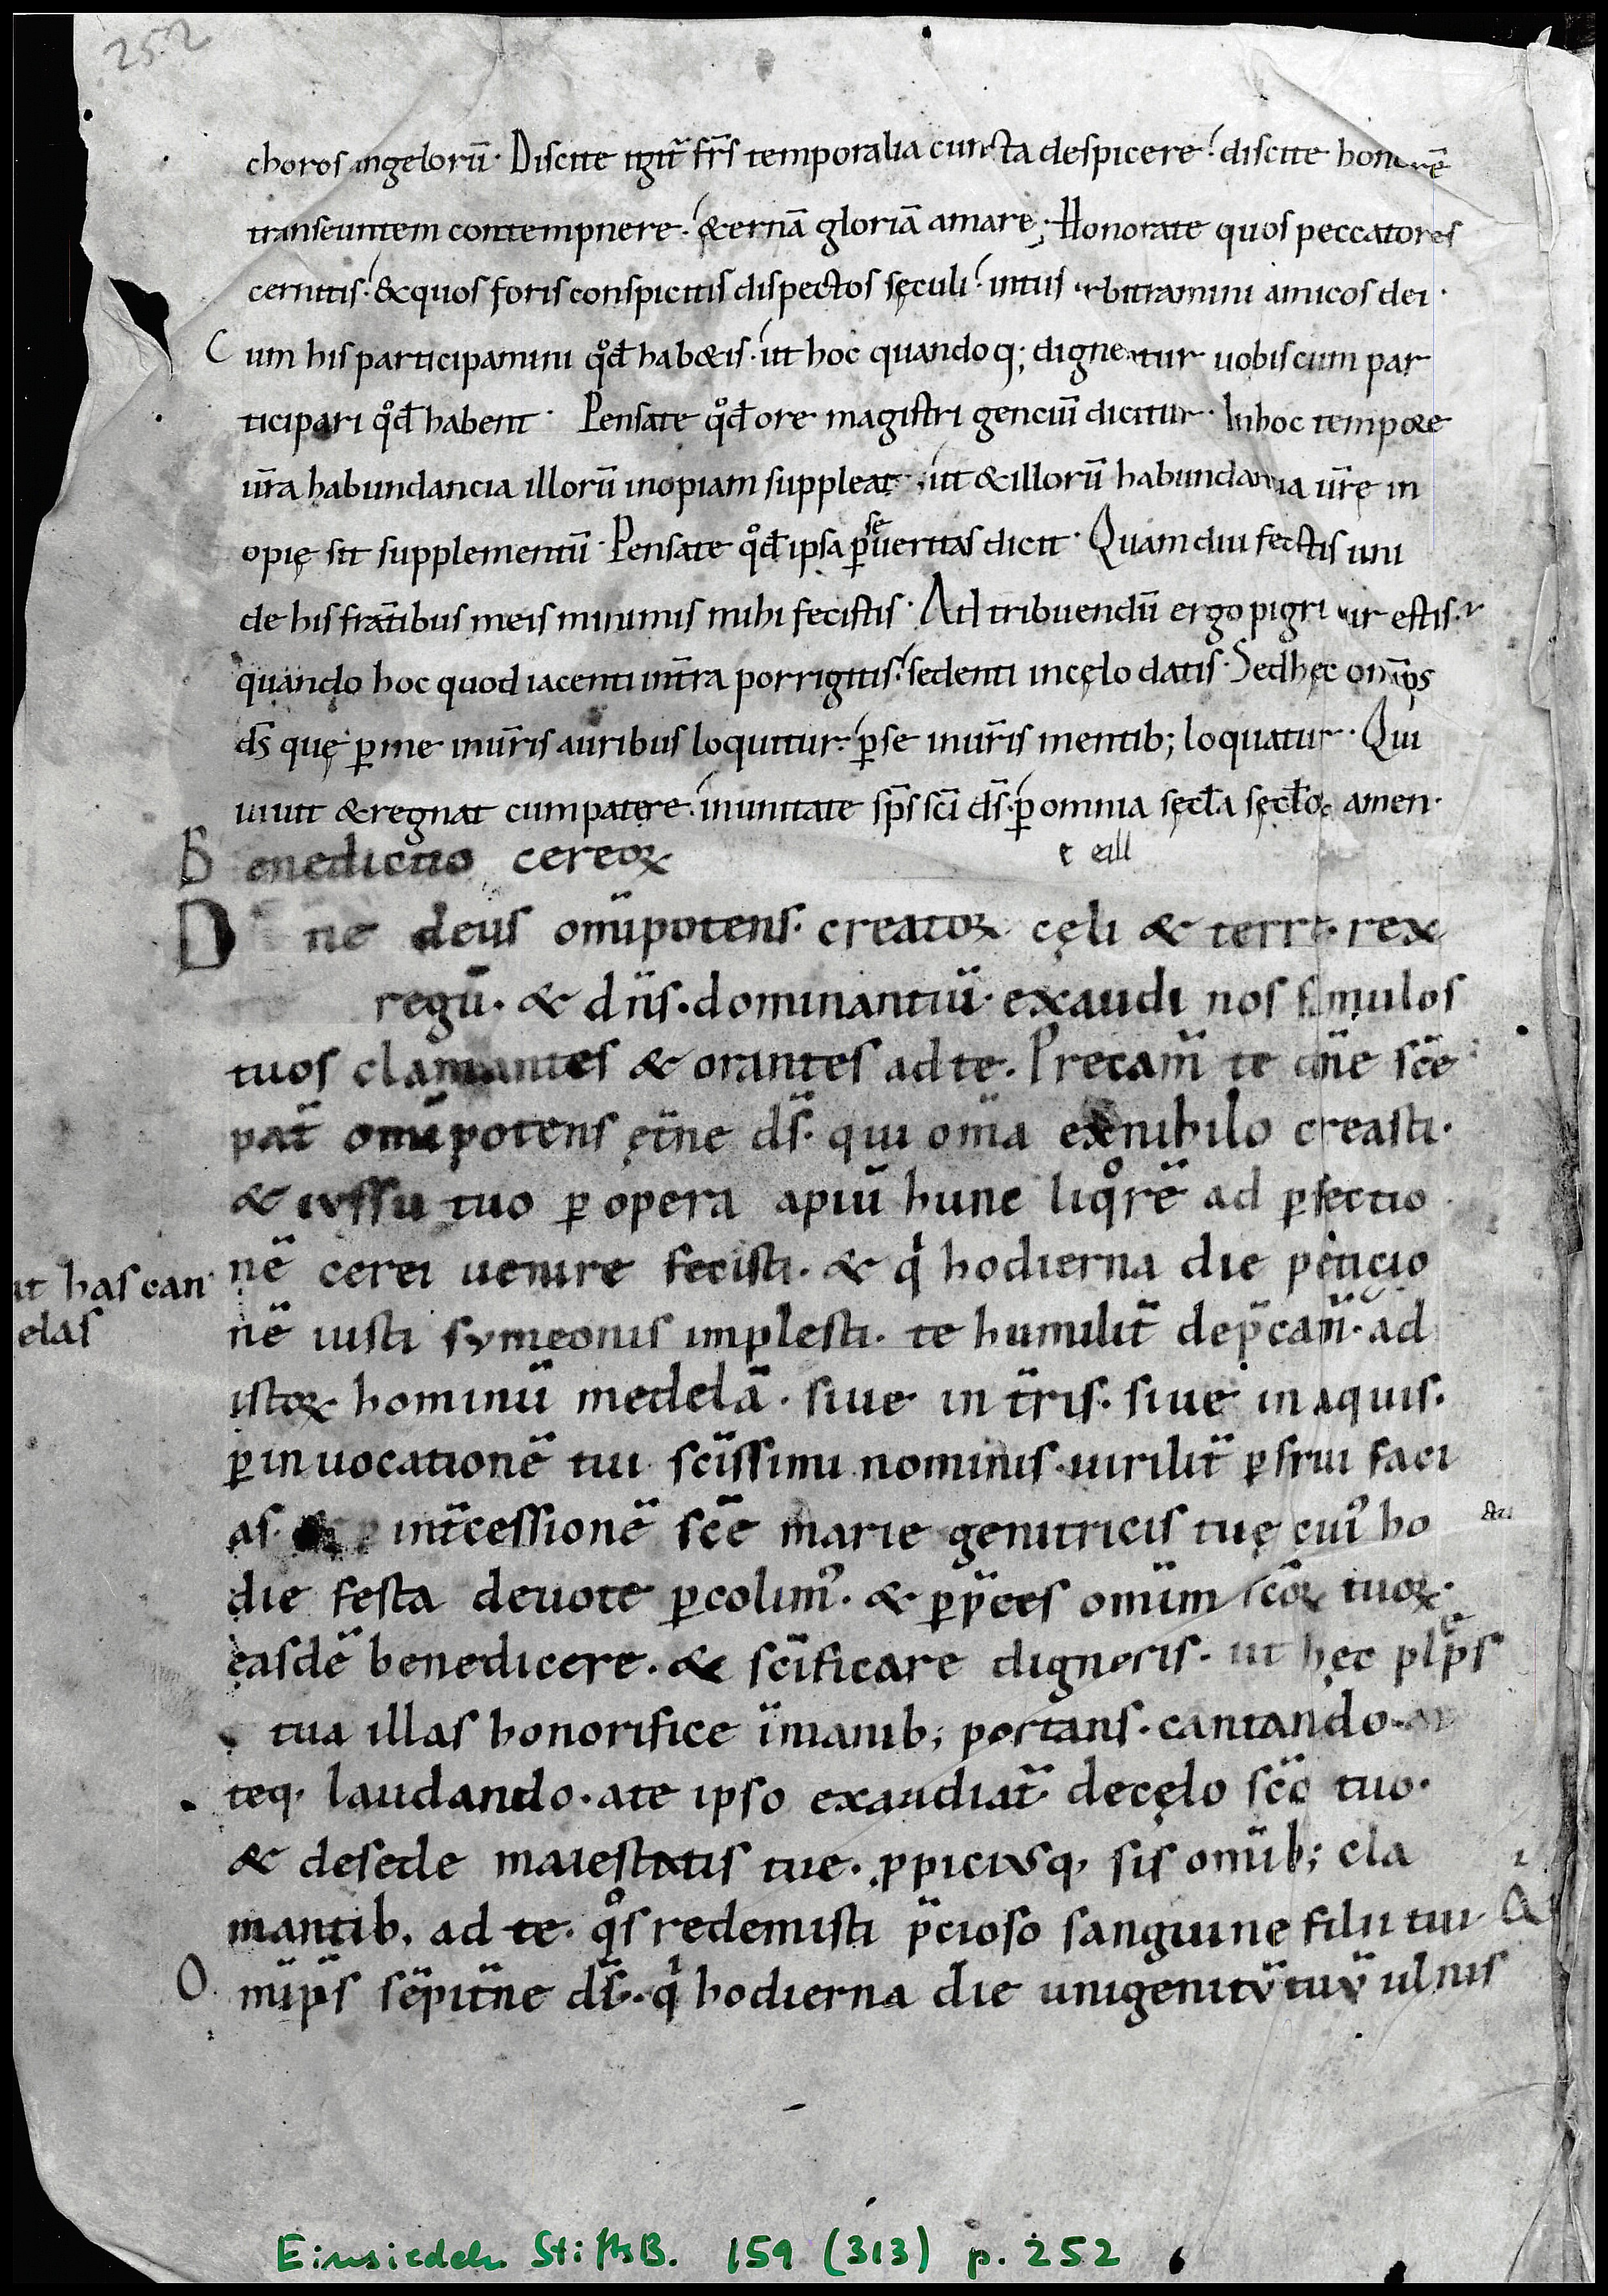 252
choros angelorū. Discite igit̄ fr̄s temporalia cuncta despicere. discite honorē
transeuntem contempnere. &ernā gloriā amare. Honorate quos peccatores
cernitis. &quos foris conspicitis dispectos sęculi. intus arbitramini amicos dei.
Cum his participamini qͦd hab&is. ut hoc quandoq; dignentur uobiscum par
ticipari qͦd habent. Pensate qͦd ore magistri genciū dicitur. Inhoc tempore
ūra habundancia illorū inopiam suppleat. ut &illorū habundancia ūrę in
opię sit supplementū. Pensate qͦd ipsa ꝑ se ueritas dicit. Quamdiu fecistis uni
de his frat̄ibus meis minimis mihi fecistis. Ad tribuendū ergo pigri cur estis.
quando hoc quod iacenti int̄ra porrigitis. sedenti incęlo datis. Sedhęc om̄ips
ds̄ quę ꝑme inūris auribus loquitur. ꝑse inūris mentib; loquatur. Qui
uiuit &regnat cumpatre. inunitate sp̄s sc̄i ds̄. ꝑ omnia secl̄a secl̄oꝝ amen.
Benedictio cereoꝝ
Dn̄e deus om̄ipotens. creator cęli & terrę. rex
regū. & dn̄s. dominantiū. exaudi nos famulos
tuos clamantes & orantes adte. Precam̄ te dn̄e sc̄e
pat̄ om̄ipotens ęt̄ne ds̄. qui om̄a exnihilo creasti.
& iussu tuo ꝑ opera apiū hunc liqͦrē ad ꝑfectio
nē cerei uenire fecisti. & qⁱ hodierna die peticio
ut has can
delas
nē iusti symeonis implesti. te humilit̄ dep̄cam̄. ad
istoꝝ hominū medelā. siue in t̄ris. siue in aquis.
ꝑinuocationē tui sc̄issimi nominis uirilit̄ ꝑfrui faci
as. & ꝑ int̄cessionē sc̄e marie genitricis tuę cuiꝰ ho
die festa deuote ꝑcolimꝰ. & ꝑp̄ces om̄ium sc̄oꝝ tuoꝝ.
easdē benedicere. & sc̄ificare digneris. ut hęc plep̄s
tua illas honorifice īmanib; portans. cantando
teq. laudando. ate ipso exaudiat̄ decęlo sc̄o tuo.
& desede maiestatis tue. ꝓpiciusq. sis om̄ib; cla
mantib. ad te. qͦs redemisti p̄cioso sanguine filii tui. &
Om̄ips̄ sēpit̄ne ds̄. qⁱ hodierna die unigenitū tuū ulnis
Einsiedeln StiftsB. 159 (313) p. 252